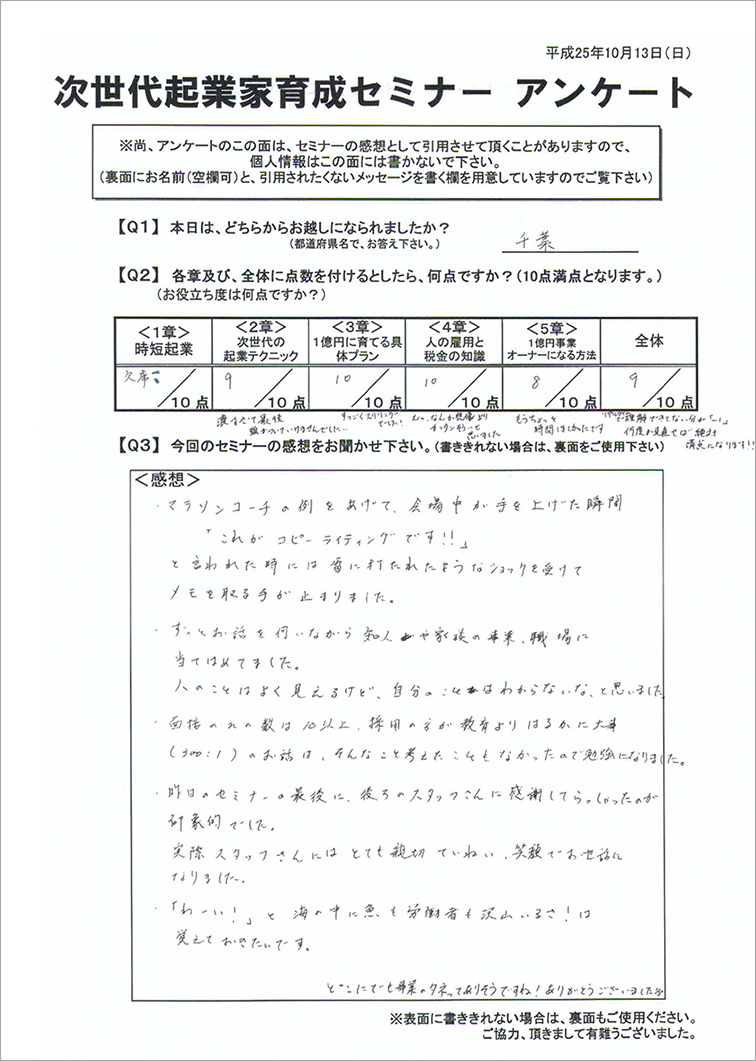 平成25年10月13日(日)
次世代起業家育成セミナー アンケート
※尚、アンケートのこの面は、セミナーの感想として引用させて頂くことがありますので、
個人情報はこの面には書かないで下さい。
(裏面にお名前(空欄可)と、引用されたくないメッセージを書く欄を用意していますのでご覧下さい)
【Q1】 本日は、どちらからお越しになられましたか?
(都道府県名で、お答え下さい。)
千葉
【Q2】 各章及び、全体に点数を付けるとしたら、何点ですか?(10点満点となります。)
(お役立ち度は何点ですか?)
<1章> 時短起業
<2章> 次世代の 起業テクニック
<3章> 1億円に育てる具体プラン
<4章> 人の雇用と 税金の知識
<5章> 1億円事業 オーナーになる方法
全体
欠席 /10点
9/10点
10/10点
10/10点
8/10点
9/10点
濃すぎて最後
頭がついていけませんでした…
すっごくスリリング
でした!
思いました
もうちょっと
時間ほしかったです
理解できてない分が
何度か見直せば絶対
満点になります!!
【Q3】 今回のセミナーの感想をお聞かせ下さい。(書ききれない場合は、裏面をご使用下さい)
<感想>
・マラソンコーチの例をあげて、会場中が手を上げた瞬間
「これが コピーライティングです!!」
と言われた時には雷に打たれたようなショックを受けて
メモを取る手が止まりました。
・ずっとお話を伺いながら知人や家族の事業、職場に
当てはめてました。
人のことはよく見えるけど、自分のことはわからないな、と思いました
・面接の の数は10以上、採用の方が教育よりはるかに大事
(300:1)のお話は、そんなこと考えたこともなかったので勉強になりました。
・昨日のセミナーの最後に、後ろのスタッフさんに感謝してらっしゃったのが
印象的でした。
実際スタッフさんにはとても親切ていねい、笑顔でお世話に
なりました。
・「わーい!」と海の中に魚も労働者も沢山いるさ!は
覚えておきたいです。
どこにでも事業のタネってありそうですね!ありがとうございました
※表面に書ききれない場合は、裏面もご使用ください。
ご協力、頂きまして有難うございました。